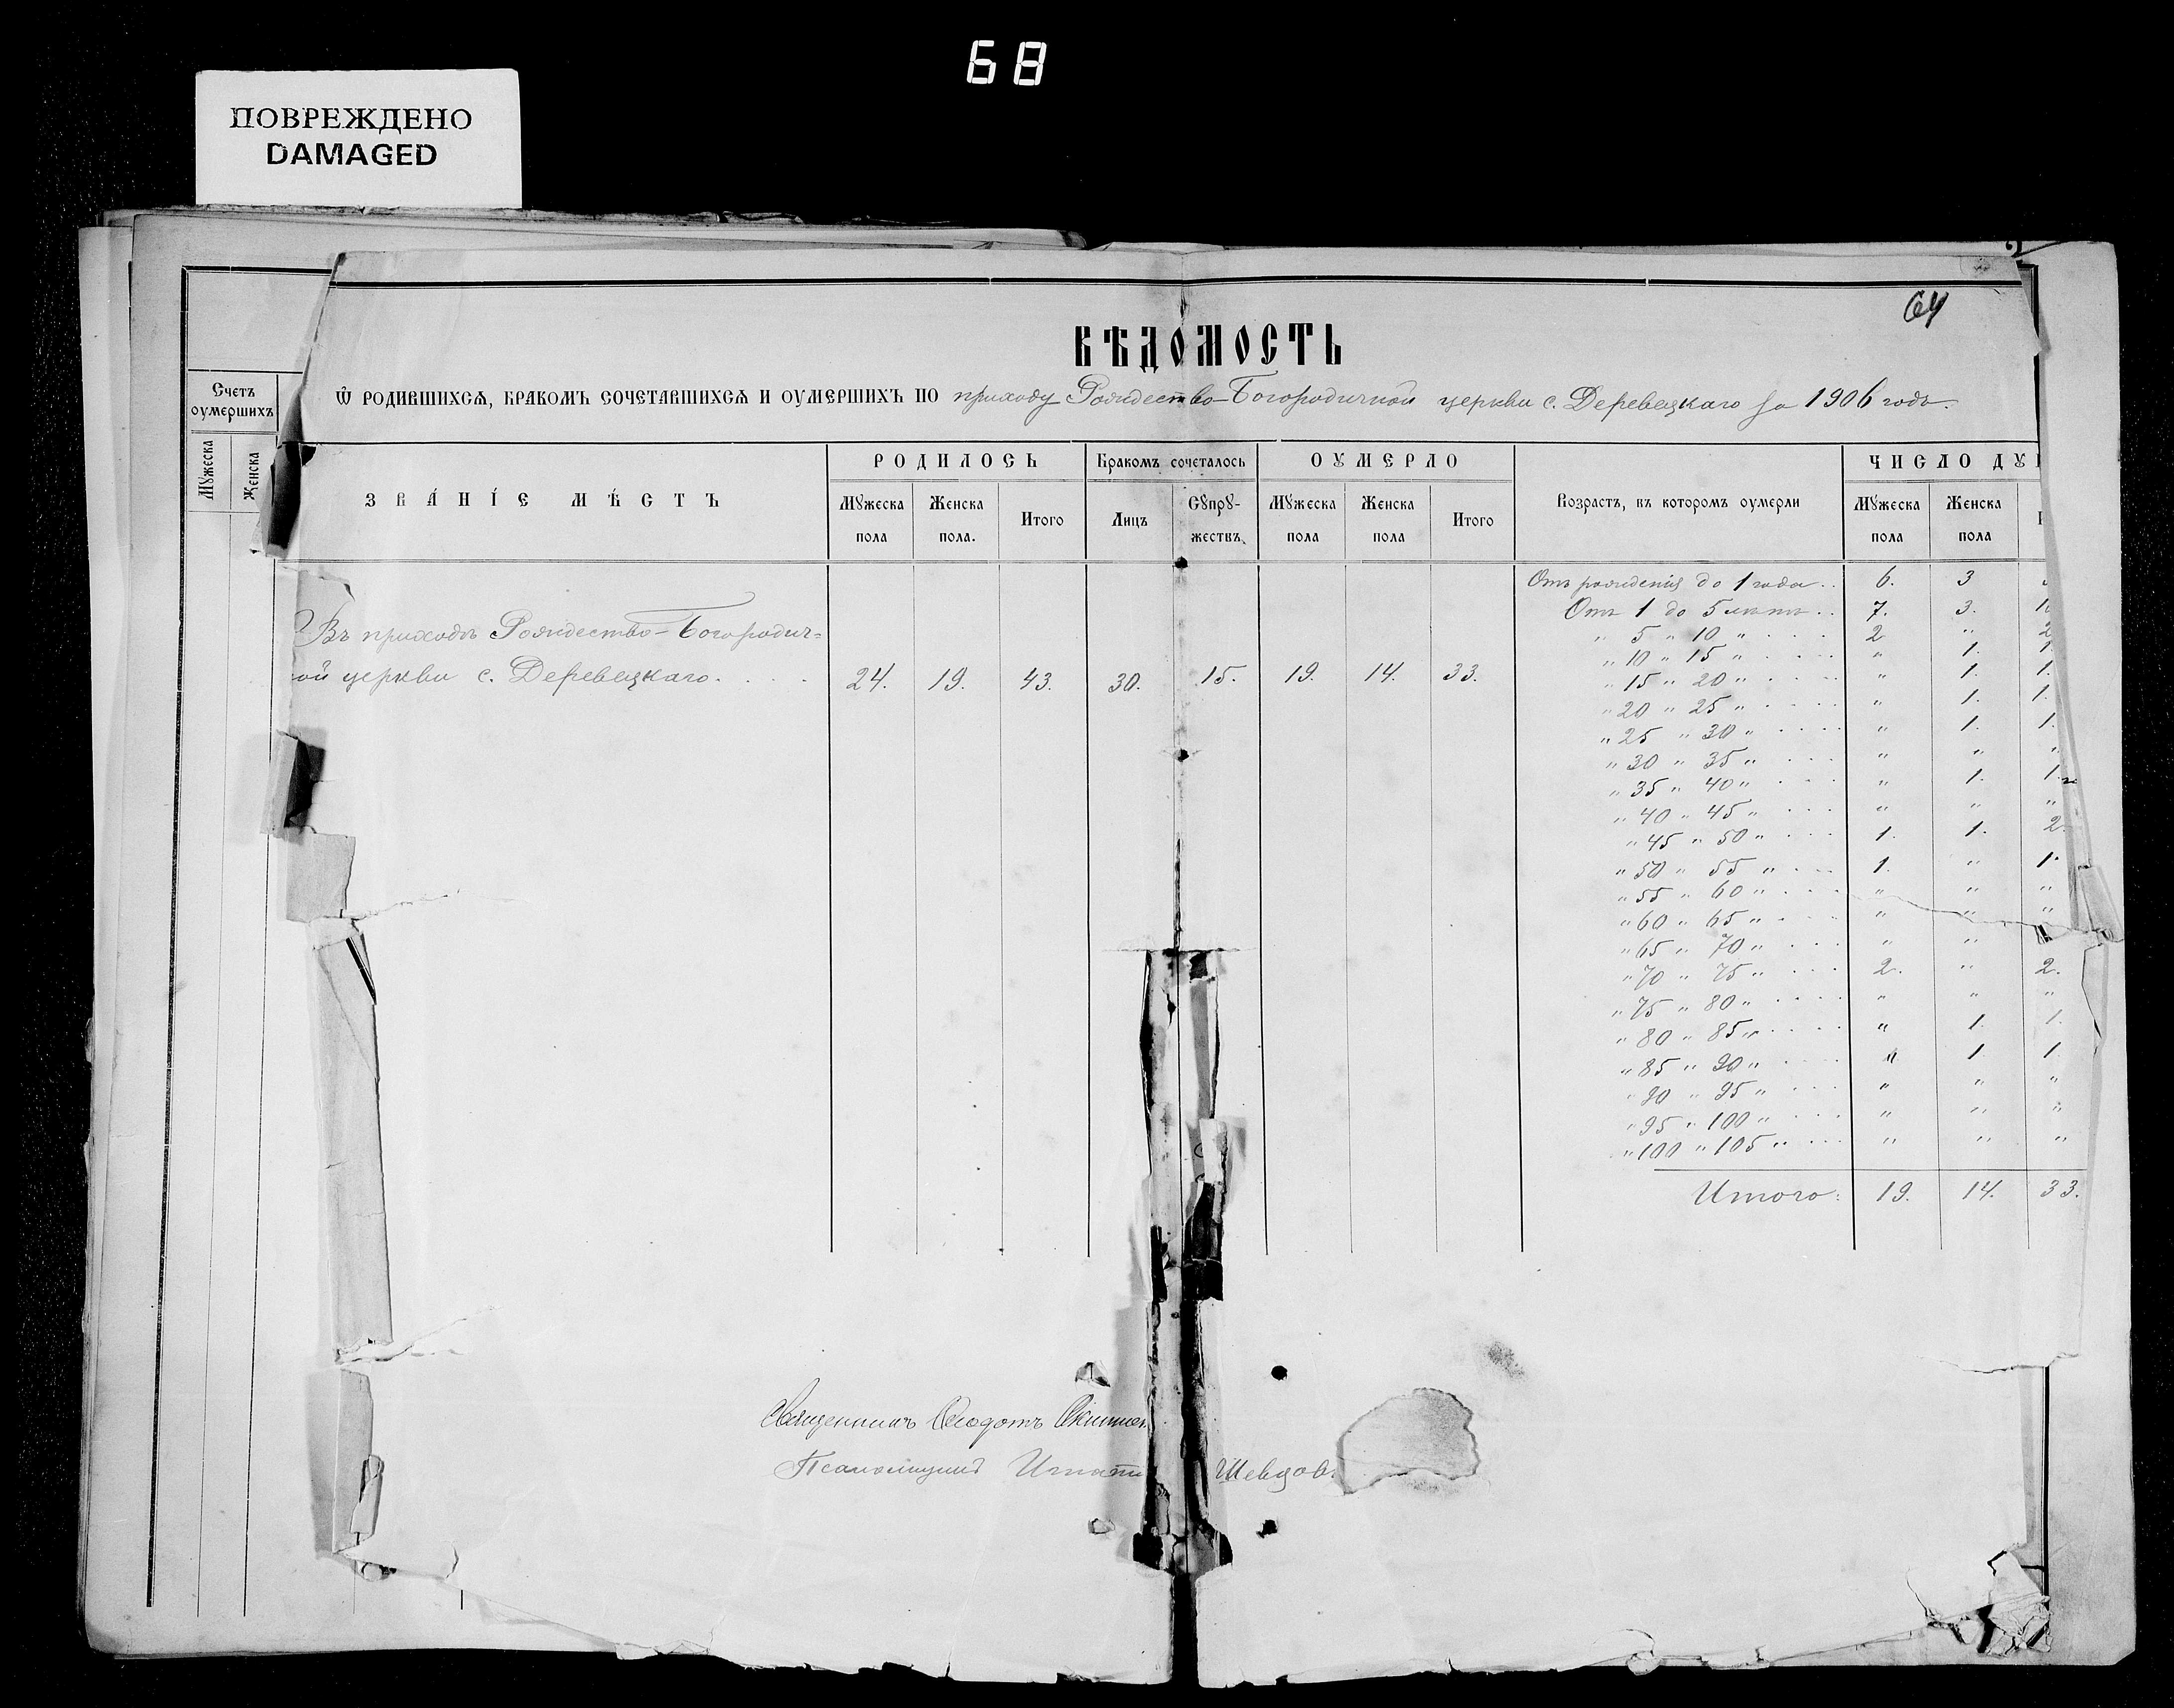 68
ПОВРЕЖДЕНО
DAMAGED
64
ВѢДОМОСТЬ
Ѡ РОДИВШИХСѦ, БРАКОМЪ СОЧЕТАВШИХСѦ И ОУМЕРШИХЪ ПО приходу Рождество-Богородичной церкви с. Деревецкаго за 1906 годъ.
Счетъ
оумершихъ
Мꙋжеска
Женска
ЗВА́НІЕ МѢ́СТЪ
РОДИЛОСЬ
Мꙋжеска пола
Женска пола.
Итого
Бракомъ сочеталось
Лицъ
Сꙋпрꙋ-
жествъ
ОУМЕРЛО
Мꙋжеска пола
Женска пола
Итого
Возрастъ, въ которомъ оумерли
ЧИСЛО ДУ
Мꙋжеска пола
Женска пола
Въ приходѣ Рождество-Богородич=
ой церкви с. Деревецкаго. . . . 24. 19. 43. 30. 15. 19. 14. 33.
Отъ рожденія до 1 года . . 6. 3
Отъ 1 до 5 лѣтъ . . 7. 3. 1
" 5 " 10 " . . . . 2 " 2
" 10 " 15 " . . . . " 1. 1
" 15 " 20 " . . . . " 1. 1.
" 20 " 25 " . . . . " 1. 1.
" 25 " 30 " . . . . " 1. 1.
" 30 " 35 " . . . " " "
" 35 " 40 " . . . " 1. 1.
" 40 " 45 " . . . " " "
" 45 " 50 " . . . 1. 1. 2.
" 50 " 55 " . . . 1. " 1.
" 55 " 60 " . . . " " "
" 60 " 65 " . . . " " "
" 65 " 70 " . . . " "
" 70 " 75 " . . . 2. " 2.
" 75 " 80 " . . . . " " "
" 80 " 85 " . . . . " 1. 1.
" 85 " 90 " . . . " 1 1.
" 90 " 95 " . . . " " "
" 95 " 100 " . . . " " "
" 100 " 105 " . . . " " "
Итого: 19. 14. 33.
Священникъ Ѳеодотъ
Псаломщикъ Шевцов